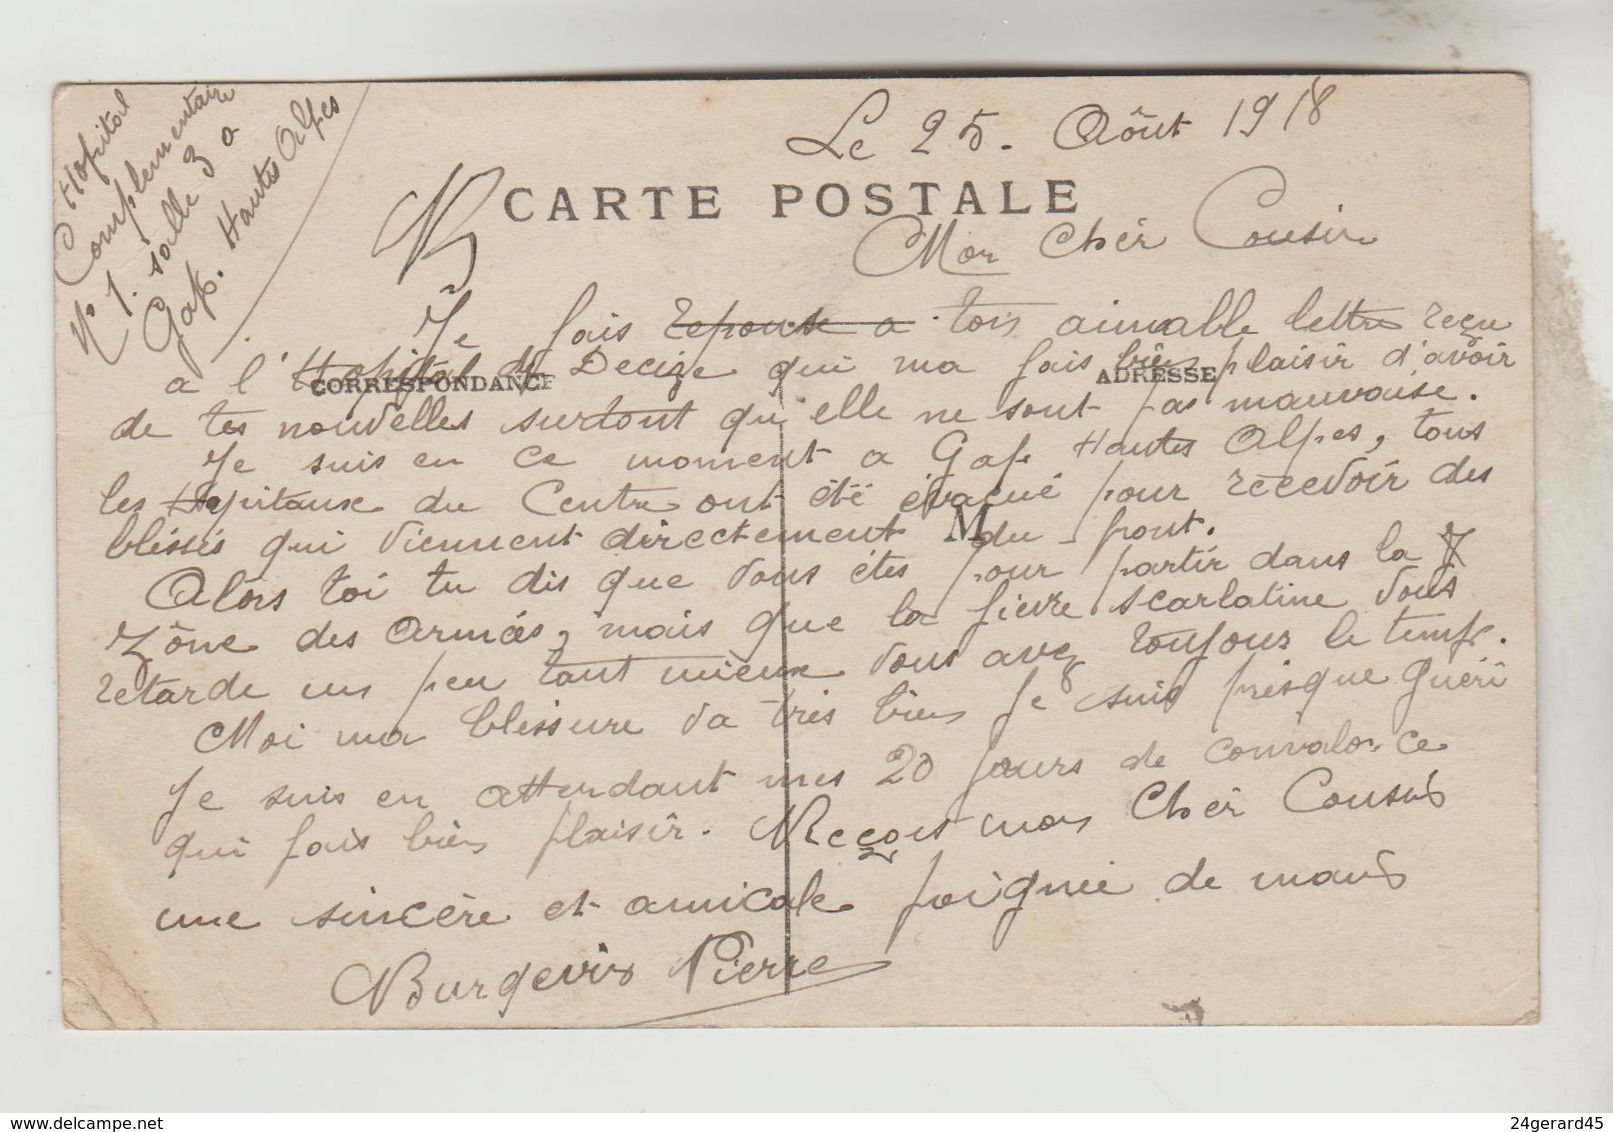 Hopital
Complementaire
N° 1. salle 30
Gap. Hautes Alpes
Le 25. Aôut 1918
CARTE POSTALE
Mon Chèr Cousin
Je fais reponse a ton aimable lettre reçu
a l'Hopital de Decize qui ma fais bien plaisir d'avoir
CORRESPONDANCE
ADRESSE
de tes nouvelles surtout qu'elle ne sont pas mauvaise.
Je suis en ce moment a Gap Hautes Alpes, tous
les Hopitaux du Centre ont été évacué pour recevoir des
M
bléssés qui viennent directement du front.
Alors toi tu dis que vous étes pour partir dans la
Zône des Armées, mais que la fievre scarlatine vous
retarde un peu tant mieux vous avez toujours le temps.
Moi ma blessure va très bien Je suis presque guéri
Je suis en attendant mes 20 jours de convalo.ce
qui fais bien plaisir. Reçois mon Chèr Cousin
une sincère et amicale poignée de main
Burgevin Pierre
www.delcampe.net
24gerard45